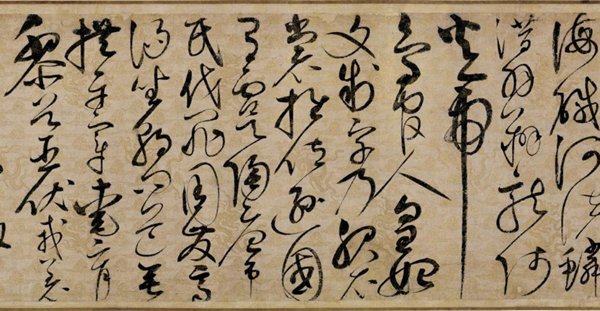 海鹹河淡鱗
潛羽翔龍師
火帝
鳥官人皇始
文制字乃服衣
裳推位遜國
有虞陶唐弔
民伐罪周發商
湯坐朝問道垂
拱平章愛育
黎首臣伏戎羌